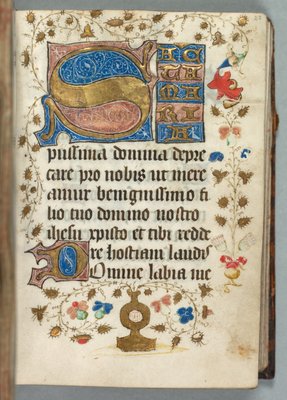 S AC
TAMA
RIA
piissima domina depre
care pro nobis ut mere
amur benignissimo fi
lio tuo domino nostro
ihesu xpisto et tibi redde
re hostiam laudis
Domine labia me